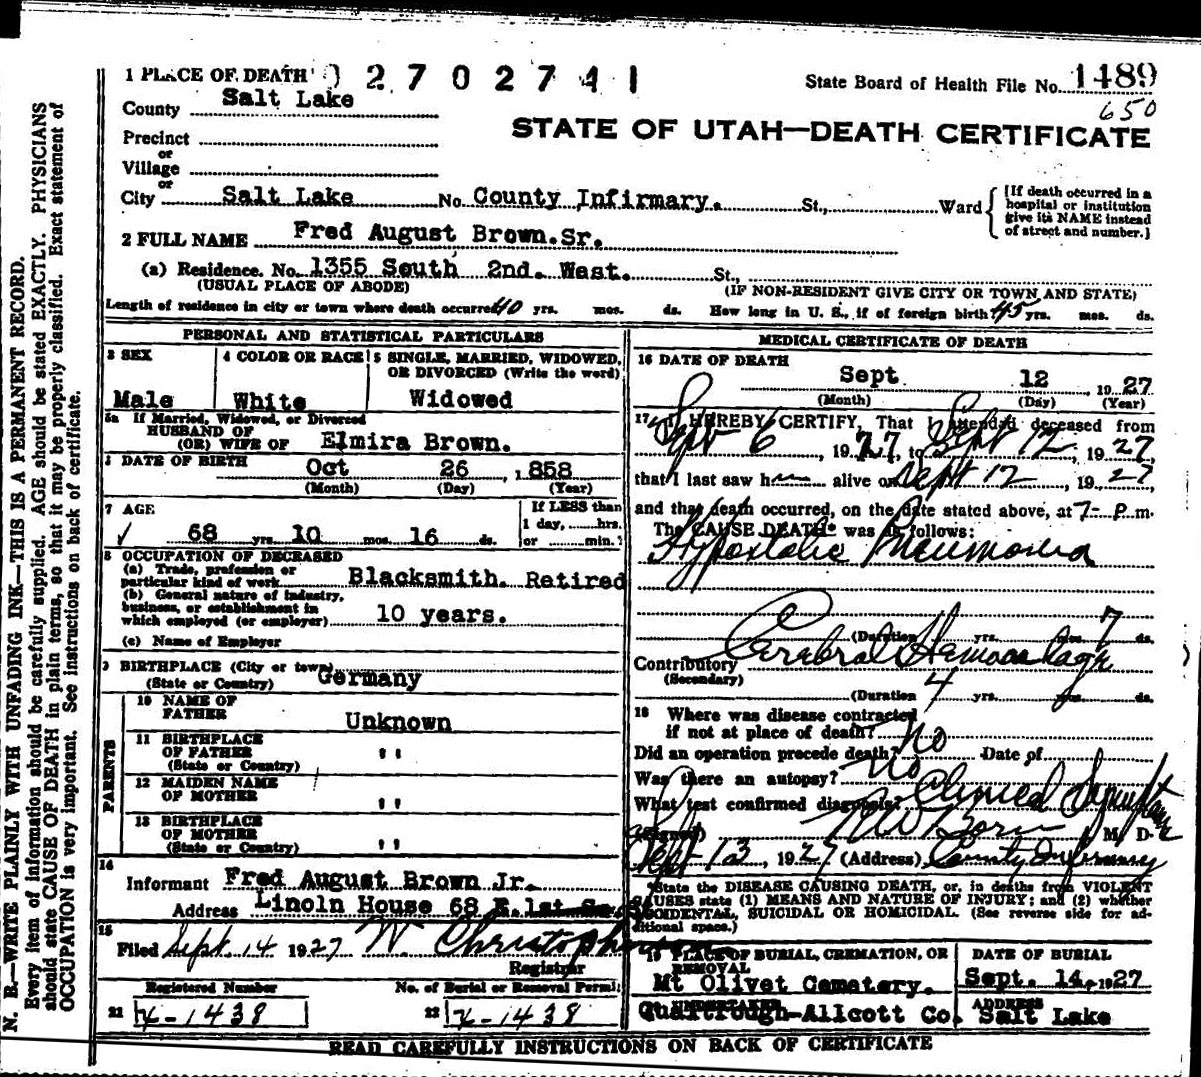 N. B.—WRITE PLAINLY WITH UNFADING INK—THIS IS A PERMANENT RECORD.
Every item of information should be carefully supplied. AGE should be stated EXACTLY. PHYSICIANS
should state CAUSE OF DEATH in plain terms, so that it may be properly classified. Exact statement of
OCCUPATION is very important. See instructions on back of certificate.
1 PLACE OF DEATH 2702741
State Board of Health File No. 1489
650
County Salt Lake
STATE OF UTAH—DEATH CERTIFICATE
Precinct
or
Village
or
City Salt Lake No. County Infirmary. St., Ward
[If death occurred in a
hospital or institution
give its NAME instead
of street and number.]
2 FULL NAME Fred August Brown.Sr.
(a) Residence. No. 1355 South 2nd. West. St.,
(USUAL PLACE OF ABODE) (IF NON-RESIDENT GIVE CITY OR TOWN AND STATE)
Length of residence in city or town where death occurred 40 yrs. mos. ds. How long in U. S., if of foreign birth? 45 yrs. mos. ds.
PERSONAL AND STATISTICAL PARTICULARS
3 SEX
Male
4 COLOR OR RACE
White
5 SINGLE, MARRIED, WIDOWED,
OR DIVORCED (Write the word)
Widowed
5a If Married, Widowed, or Divorced
HUSBAND OF
(OR) WIFE OF Elmira Brown.
DATE OF BIRTH
Oct 26 , 1858
(Month) (Day) (Year)
7 AGE
68 yrs. 10 mos. 16 ds.
If LESS than
1 day, hrs.
or min.?
8 OCCUPATION OF DECEASED
(a) Trade, profession or
particular kind of work Blacksmith. Retired
(b) General nature of industry,
business, or establishment in
which employed (or employer) 10 years.
(c) Name of Employer
9 BIRTHPLACE (City or town)
(State or Country) Germany
PARENTS
10 NAME OF
FATHER Unknown
11 BIRTHPLACE
OF FATHER
(State or Country) "
12 MAIDEN NAME
OF MOTHER "
13 BIRTHPLACE
OF MOTHER
(State or Country) "
14
Informant Fred August Brown Jr.
Address Lincoln House 68 E. 1st So.
15
Filed Sept. 14 1927 W. Christopherson
Registrar
Registered Number
21 X-1438
No. of Burial or Removal Permit
22 X-1438
MEDICAL CERTIFICATE OF DEATH
16 DATE OF DEATH
Sept 12 1927
(Month) (Day) (Year)
17 I HEREBY CERTIFY, That I attended deceased from
Sept 6, 1927, to Sept 12, 1927,
that I last saw him alive on Sept 12, 1927
and that death occurred, on the date stated above, at 7- P.m.
The CAUSE DEATH* was as follows:
Hypostatic Pneumonia
(Duration yrs. mos. 7 ds.
Contributory Cerebral Hemorrhage
(Secondary)
(Duration 4 yrs. mos. ds.
18 Where was disease contracted
if not at place of death?
Did an operation precede death? No Date of
Was there an autopsy? No
What test confirmed diagnosis? Clinical Symptoms
(Signed) M. D.
Sept 13, 1927 (Address) County Infirmary
*State the DISEASE CAUSING DEATH, or, in deaths from VIOLENT
CAUSES state (1) MEANS AND NATURE OF INJURY; and (2) whether
ACCIDENTAL, SUICIDAL OR HOMICIDAL. (See reverse side for ad-
ditional space.)
19 PLACE OF BURIAL, CREMATION, OR
REMOVAL
Mt Olivet Cemetary.
DATE OF BURIAL
Sept. 14, 1927
UNDERTAKER
Quartrough-Allcott Co.
ADDRESS
Salt Lake
READ CAREFULLY INSTRUCTIONS ON BACK OF CERTIFICATE